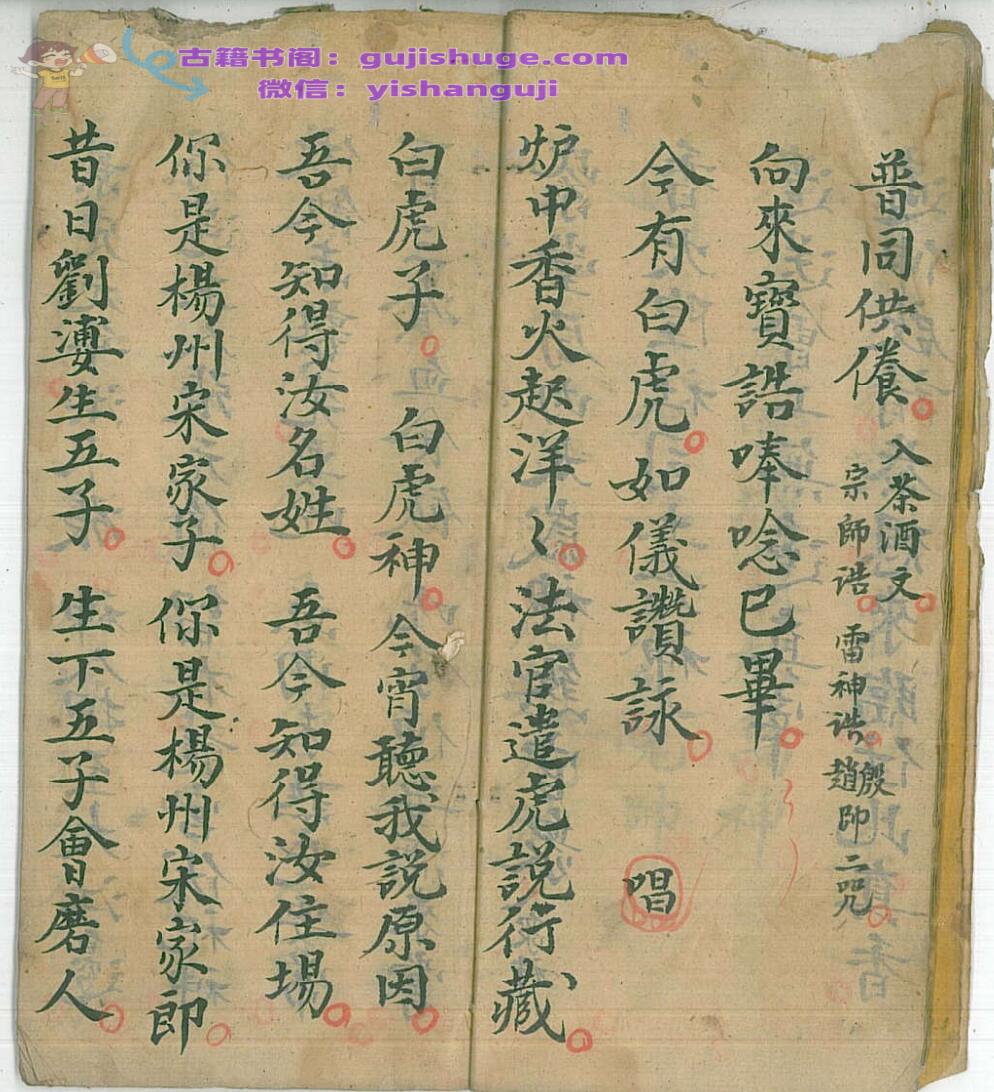 古籍书阁：gujishuge.com
微信：yishanguji
普同供養。入茶酒文。
宗師誥。雷神誥。殷趙帥二咒。
向來寶誥唪唸已畢。
今有白虎。如儀讚詠。唱
炉中香火起洋〻。法官遣虎説行藏。
白虎子。白虎神。今宵聽我説原因。
吾今知得汝名姓。吾今知得汝住場。
你是楊州宋家子。你是楊州宋家郎。
昔日劉婆生五子。生下五子會磨人。